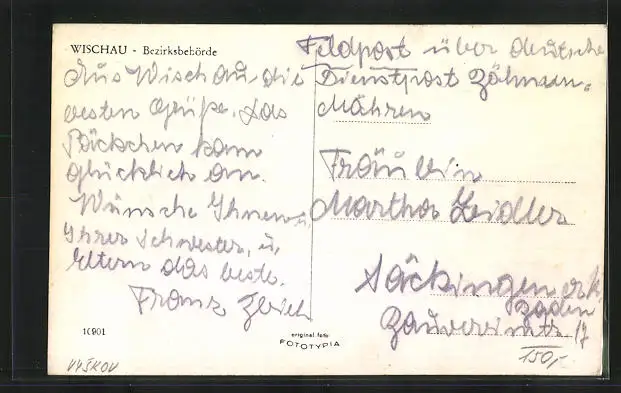 WISCHAU - Bezirksbehörde
Aus Wischau die
besten Grüße. Das
Päckchen kam
glücklich an.
Wünsche Ihnen,
Ihrer Schwester, u.
Eltern das beste.
Franz
10901
VYŠKOV
original foto
FOTOTYPIA
Feldpost über deutsche
Dienstpost Böhmen-
Mähren
Fräulein
Martha Zeidler
Säckingen
Baden
17
150,-